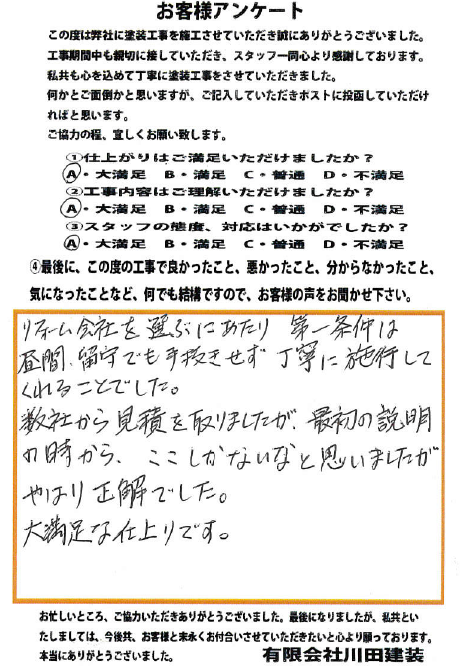 お客様アンケート
この度は弊社に塗装工事を施工させていただき誠にありがとうございました。
工事期間中も親切に接していただき、スタッフ一同心より感謝しております。
私共も心を込めて丁寧に塗装工事をさせていただきました。
何かとご面倒かと思いますが、ご記入していただきポストに投函していただけ
ればと思います。
ご協力の程、宜しくお願い致します。
①仕上がりはご満足いただけましたか？
A・大満足 B・満足 C・普通 D・不満足
②工事内容はご理解いただけましたか？
A・大満足 B・満足 C・普通 D・不満足
③スタッフの態度、対応はいかがでしたか？
A・大満足 B・満足 C・普通 D・不満足
④最後に、この度の工事で良かったこと、悪かったこと、分からなかったこと、
気になったことなど、何でも結構ですので、お客様の声をお聞かせ下さい。
リフォーム会社を選ぶにあたり 第一条件は
昼間、留守でも手抜きせず丁寧に施行して
くれることでした。
数社から見積を取りましたが、最初の説明
の時から、ここしかないなと思いましたが
やはり正解でした。
大満足な仕上りです。
お忙しいところ、ご協力いただきありがとうございました。最後になりましたが、私共とい
たしましては、今後共、お客様と末永くお付合いさせていただきたいと心より願っております。
本当にありがとうございました。 有限会社川田建装